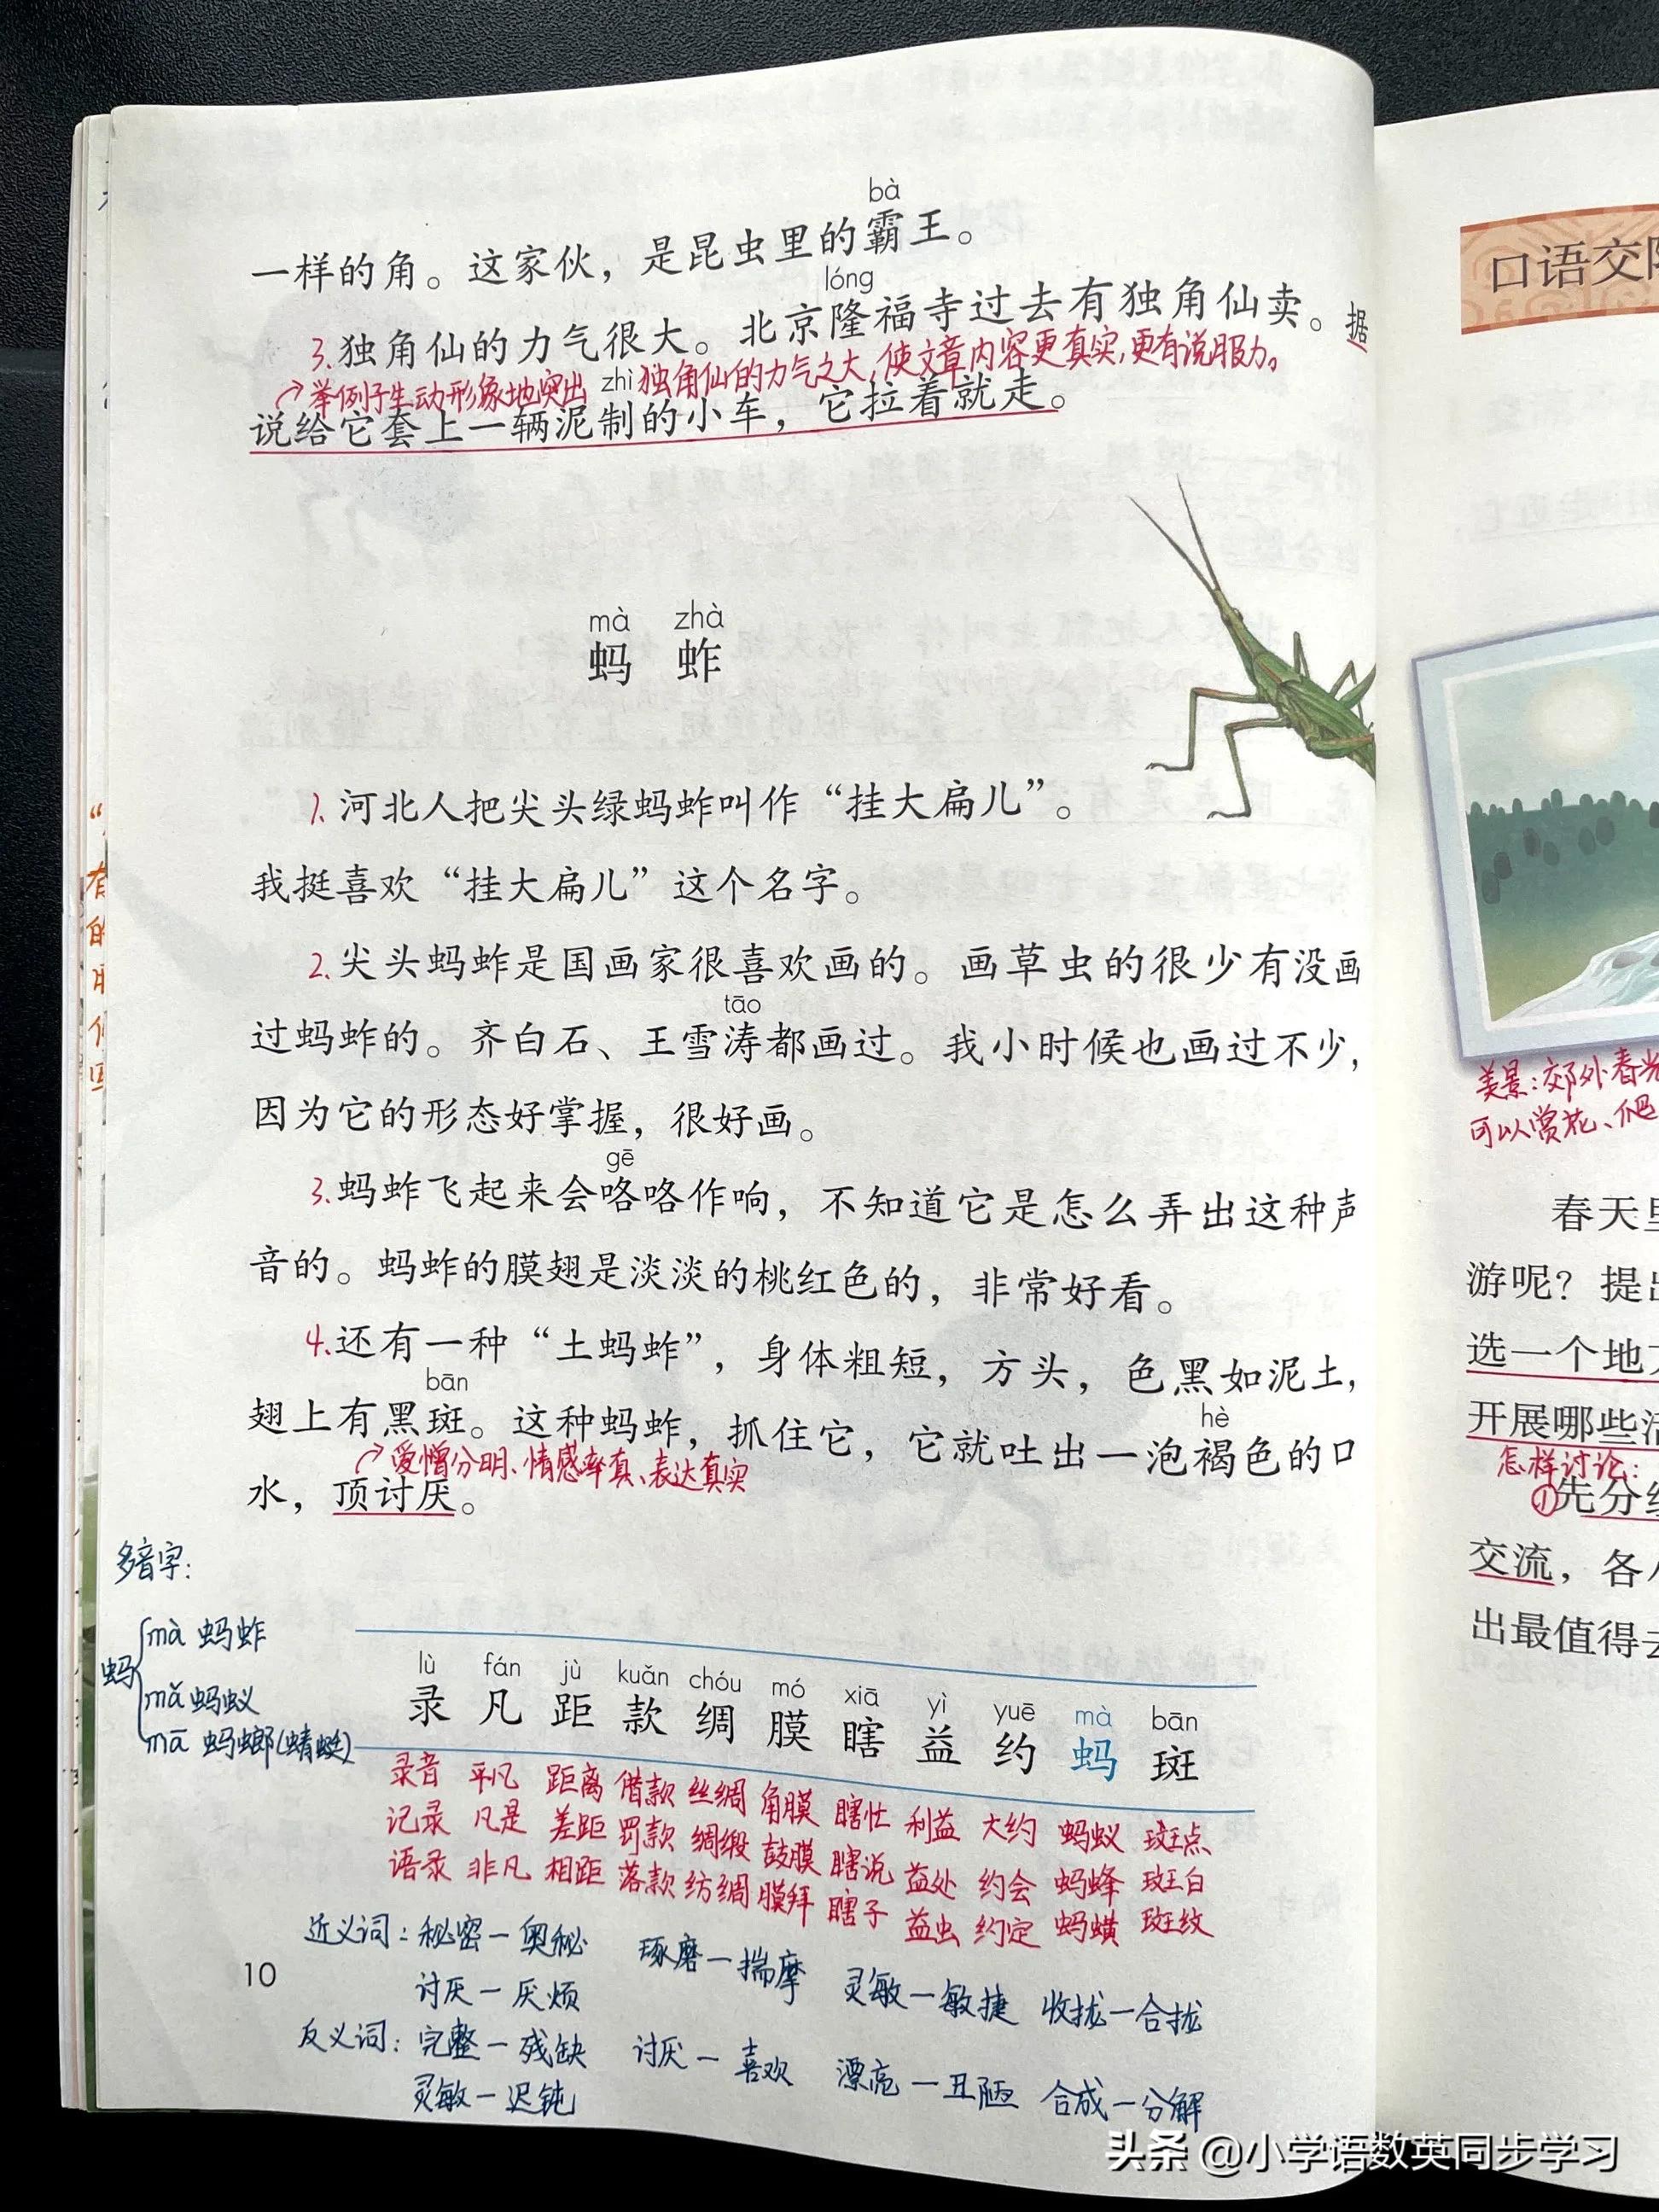 bà
一样的角。这家伙，是昆虫里的霸王。
lóng
3.独角仙的力气很大。北京隆福寺过去有独角仙卖。据
举例子生动形象地突出独角仙的力气之大，使文章内容更真实，更有说服力。
zhì
说给它套上一辆泥制的小车，它拉着就走。
mà zhà
蚂 蚱
1.河北人把尖头绿蚂蚱叫作“挂大扁儿”。
我挺喜欢“挂大扁儿”这个名字。
2.尖头蚂蚱是国画家很喜欢画的。画草虫的很少有没画
tāo
过蚂蚱的。齐白石、王雪涛都画过。我小时候也画过不少，
因为它的形态好掌握，很好画。
gē
3.蚂蚱飞起来会咯咯作响，不知道它是怎么弄出这种声
音的。蚂蚱的膜翅是淡淡的桃红色的，非常好看。
4.还有一种“土蚂蚱”，身体粗短，方头，色黑如泥土，
bān
翅上有黑斑。这种蚂蚱，抓住它，它就吐出一泡褐色的口
hè
爱憎分明、情感率真、表达真实
水，顶讨厌。
多音字：
蚂
mà 蚂蚱
mǎ 蚂蚁
mā 蚂螂(蜻蜓)
lù fán jù kuǎn chóu mó xiā yì yuē mà bān
录 凡 距 款 绸 膜 瞎 益 约 蚂 斑
录音 平凡 距离 借款 丝绸 角膜 瞎忙 利益 大约 蚂蚁 斑点
记录 凡是 差距 罚款 绸缎 鼓膜 瞎说 益处 约会 蚂蜂 斑白
语录 非凡 相距 落款 纺绸 膜拜 瞎子 益虫 约定 蚂蟥 斑纹
近义词：秘密—奥秘 琢磨—揣摩 灵敏—敏捷 收拢—合拢
讨厌—厌烦
反义词：完整—残缺 讨厌—喜欢 漂亮—丑陋 合成—分解
灵敏—迟钝
10
口语交际
美景：郊外春光
可以赏花、爬
春天里
游呢？提出
选一个地方
开展哪些活
怎样讨论：
①先分组
交流，各小
出最值得去
头条 @小学语数英同步学习